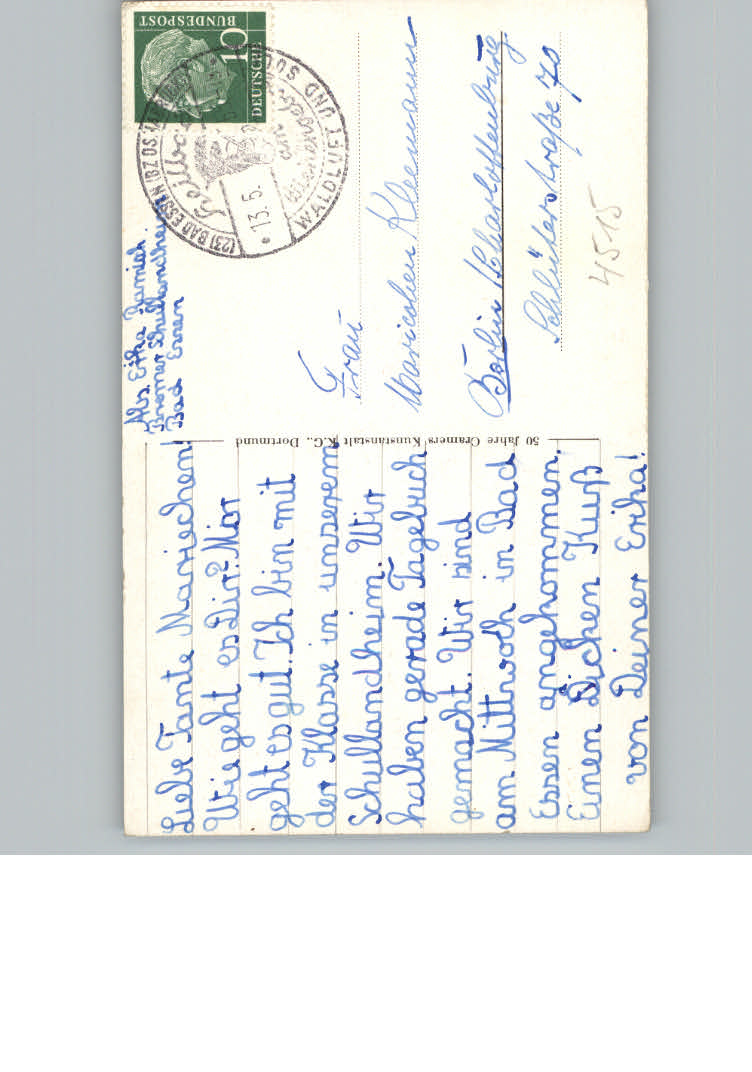 Liebe Tante Mariechen!
Wie geht es Dir? Mir
geht es gut. Ich bin mit
der Klasse in unserem
Schullandheim. Wir
haben gerade Tagebuch
gemacht. Wir sind
am Mittwoch in Bad
Essen angekommen.
Einen Dicken Kuß
von Deiner Erika!
50 Jahre Cramers Kunstanstalt K.G., Dortmund
Abs. Erika
Bremer Schullandheim
Bad Essen
DEUTSCHE
BUNDESPOST
10
(23) BAD ESSEN (BZ OS
WALDLUFT UND
am
Wiehengeb.
13.5.
Frau
Mariechen Kleemann
Berlin Charlottenburg
Schlüterstraße 70
4515